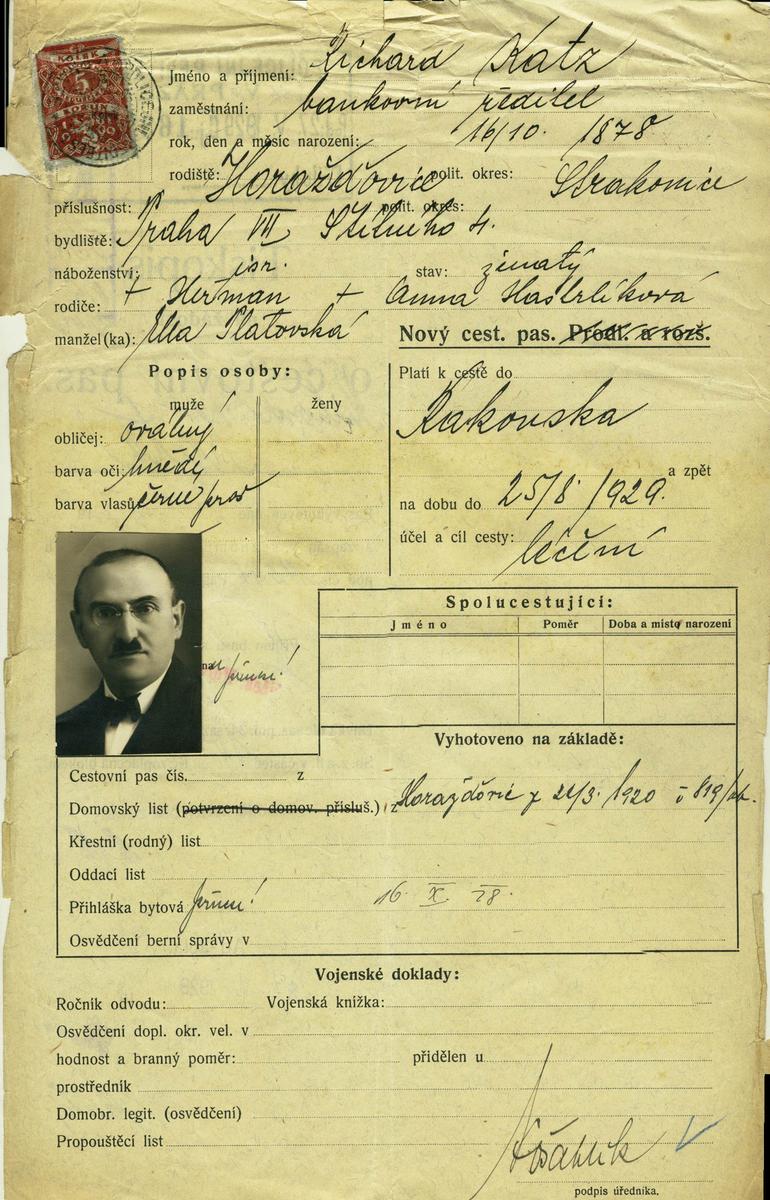 KOLEK
5
Jméno a příjmení: Richard Katz
zaměstnání: bankovní ředitel
rok, den a měsíc narození: 16/10. 1878
rodiště: Horažďovic polit. okres: Strakonice
příslušnost: polit. okres:
bydliště: Praha VII Štítného 4.
náboženství: isr. stav: ženatý
rodiče: + Heřman + Anna Hastrlíková
manžel(ka): Ella Platovská
Nový cest. pas. Prodl. a rozš.
Popis osoby:
muže ženy
obličej: oválný
barva očí: hnědý
barva vlasů: černé pros
Platí k cestě do
Rakouska
a zpět
na dobu do 25/8. /1929.
účel a cíl cesty: léčení
Spolucestující:
Jméno Poměr Doba a místo narození
Vyhotoveno na základě:
Cestovní pas čís. z
Domovský list (potvrzení o domov. přísluš.) z Horažďovic z 22/3. 1920 č 819/
Křestní (rodný) list
Oddací list
Přihláška bytová 16. X. 78.
Osvědčení berní správy v
Vojenské doklady:
Ročník odvodu: Vojenská knížka:
Osvědčení dopl. okr. vel. v
hodnost a branný poměr: přidělen u
prostředník
Domobr. legit. (osvědčení)
Propouštěcí list
podpis úředníka.